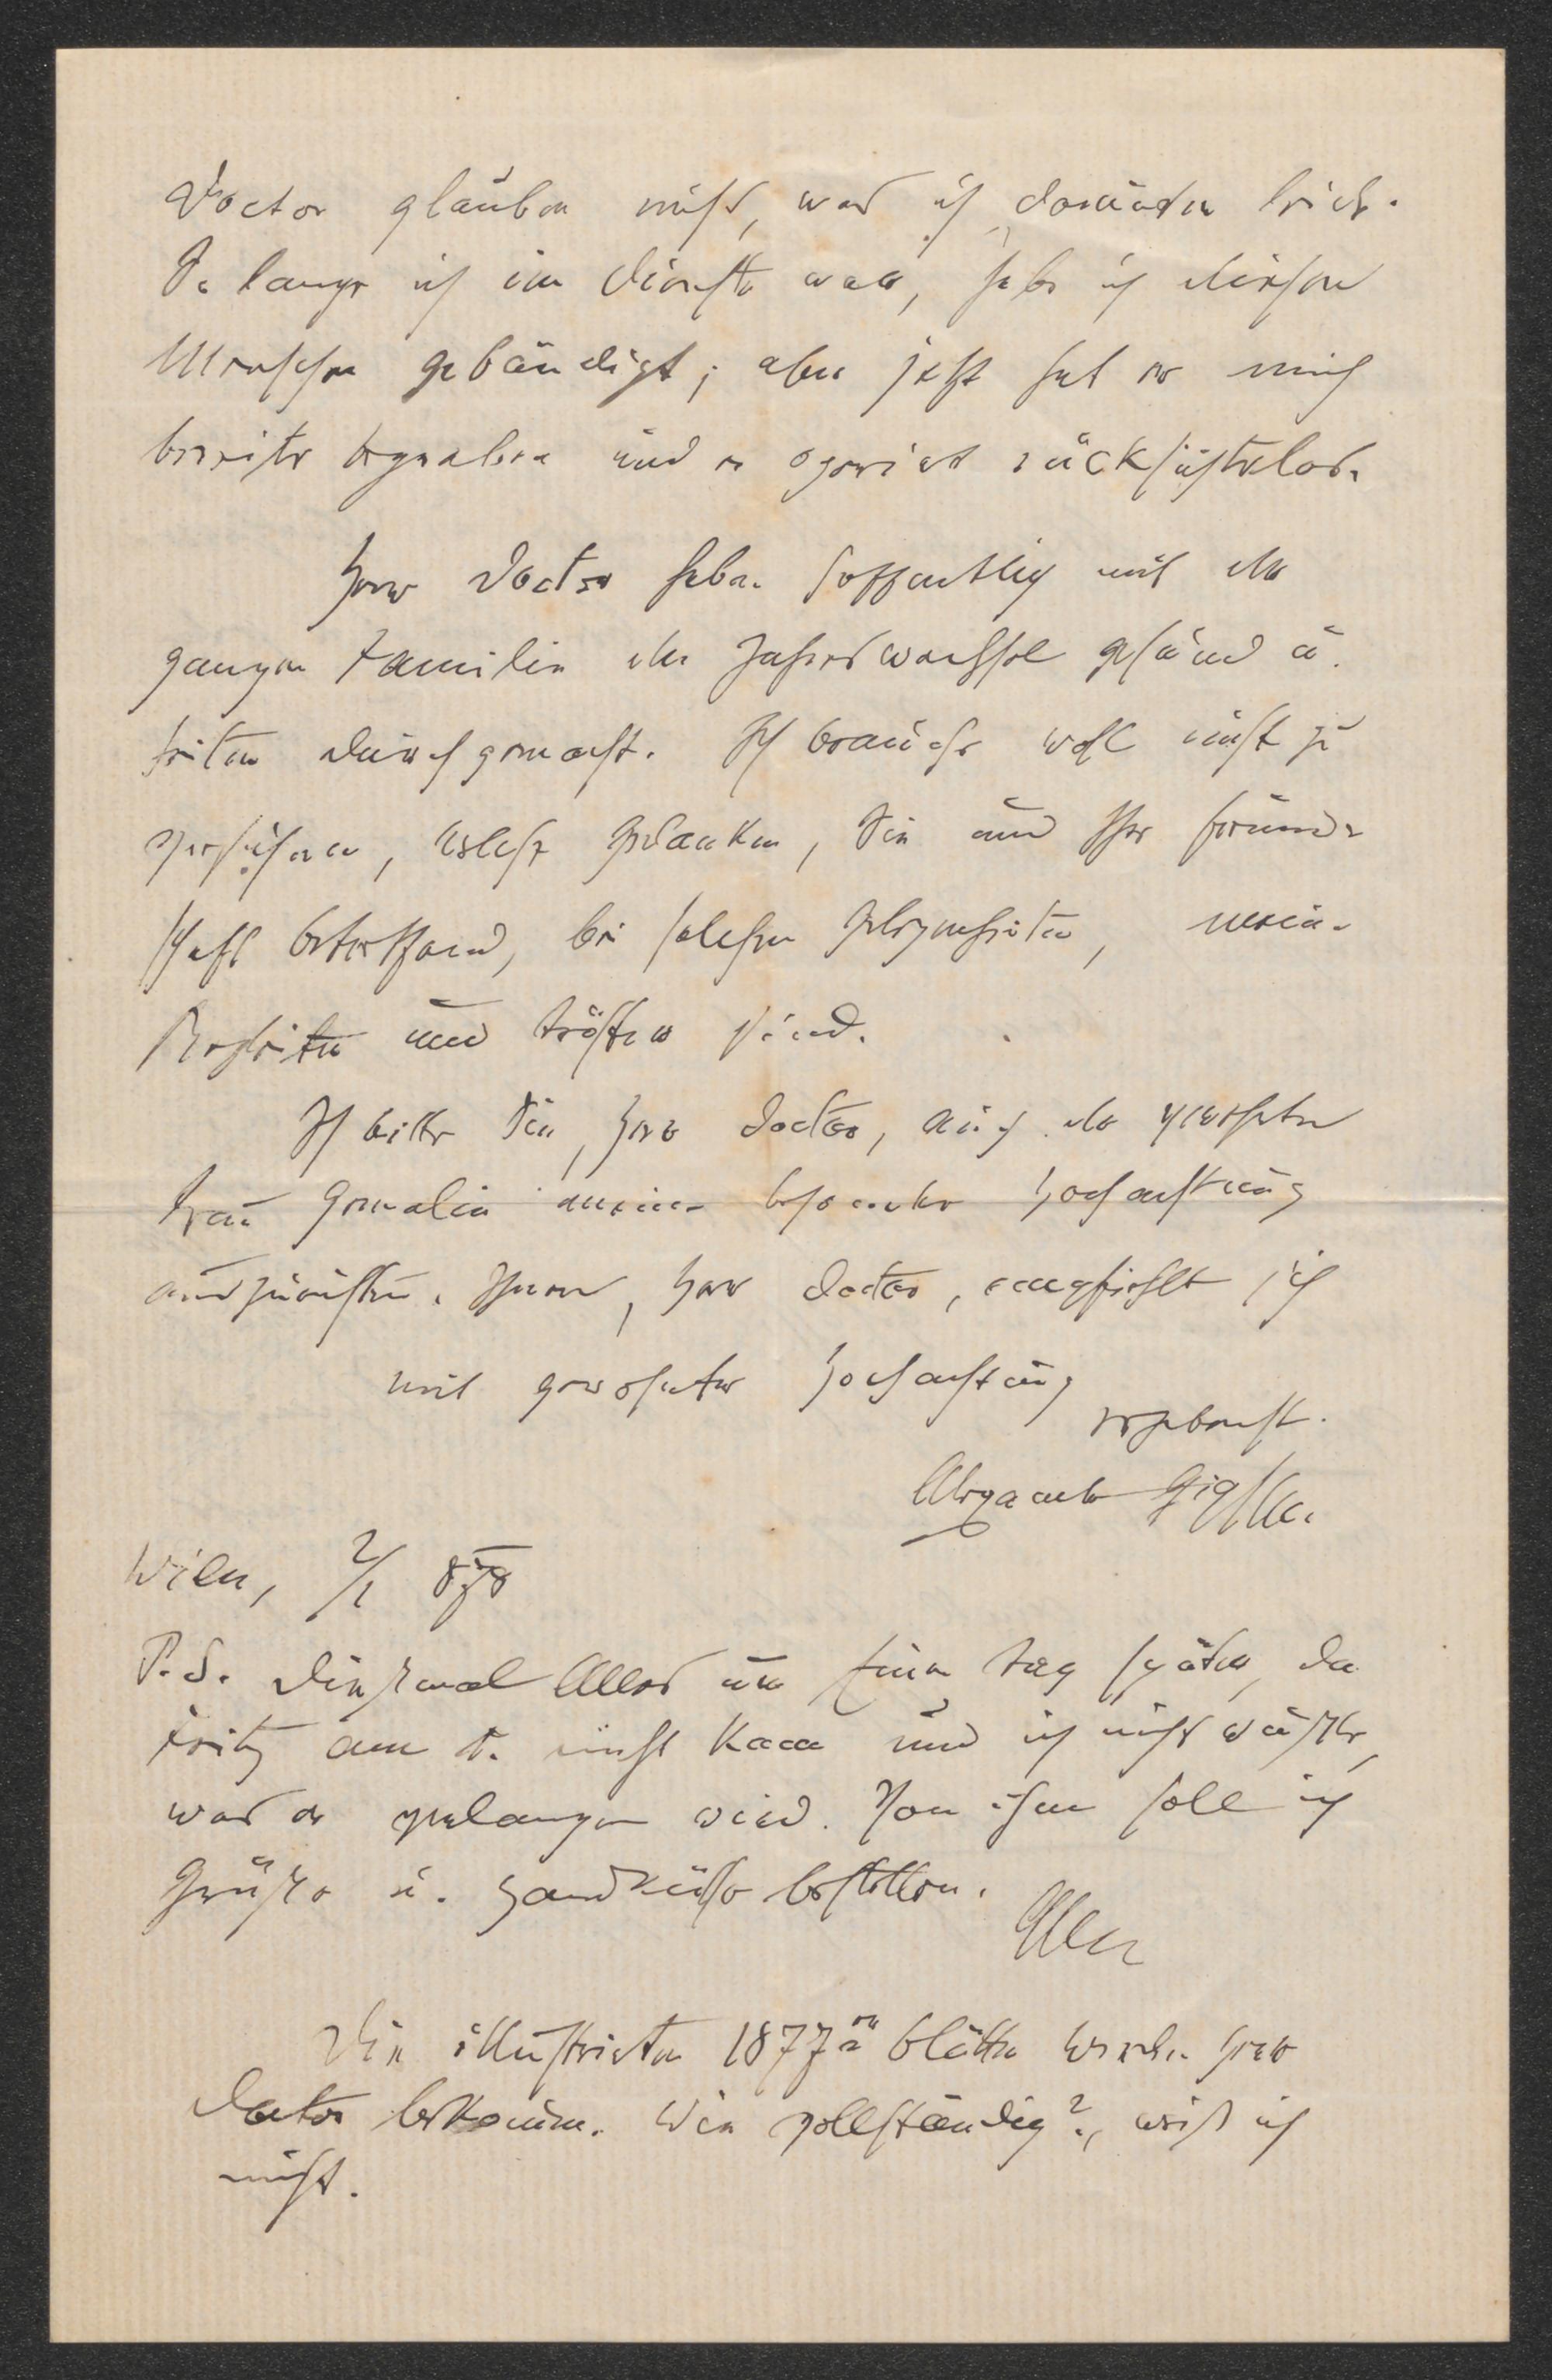 Doctor glauben nicht, was ich darunter leide.
So lange ich im Dienste war, habe ich diesen
Menschen gebändigt; aber jetzt hat er mich
bereits begraben und er operiert rücksichtslos.
Herr Doctor haben hoffentlich mit der
ganzen Familie den Jahreswechsel gesund u.
heiter durchgemacht. Ich brauche wohl nicht zu
versichern, welche Gedanken, Sie und Ihre Freund-
schaft betreffend, bei solchen Gelegenheiten, meine
Begleiter und Tröster sind.
Ich bitte Sie, Herr Doctor, auch der verehrten
Frau Gemalin meine besondere Hochachtung
auszurichten. Ihnen, Herr Doctor, empfiehlt sich
mit gewohnter Hochachtung
ergebenst
Wien, 2/1 878
P.S. Diesmal Alles um einen Tag später, da
Fritz am 1. nicht kam und ich nicht wußte,
was er verlangen wird. Von ihm soll ich
Grüße u. Handküsse bestellen.
Die illustrirten 1877er Blätter werden Herr
Doctor bekommen. Wie vollständig?, weiß ich
nicht.